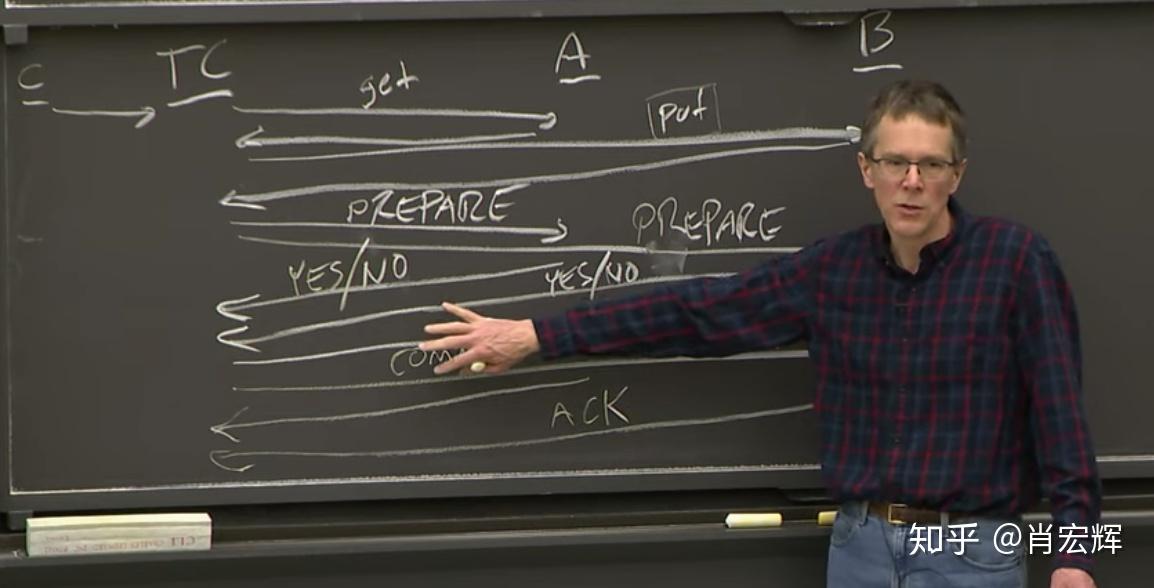 C TC A B
get
put
PREPARE PREPARE
YES/NO YES/NO
COMM
ACK
知乎 @肖宏辉